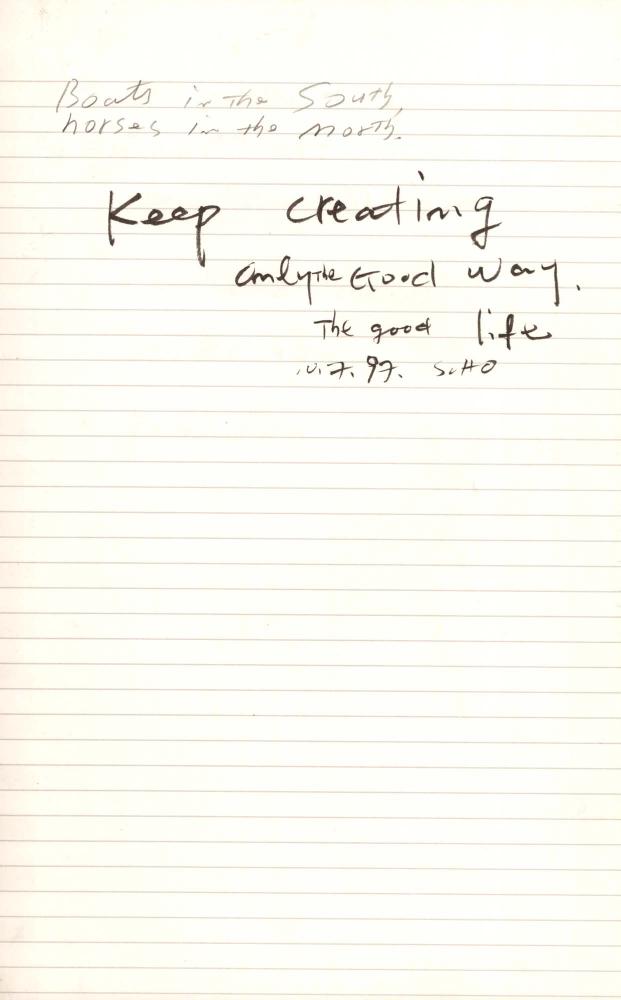 Boats in the South,
horses in the north.
Keep creating
only the Good way.
The good life
7. 97. SoHO